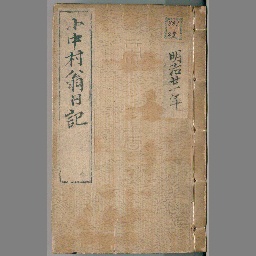 明治廿一年
小中村翁日記